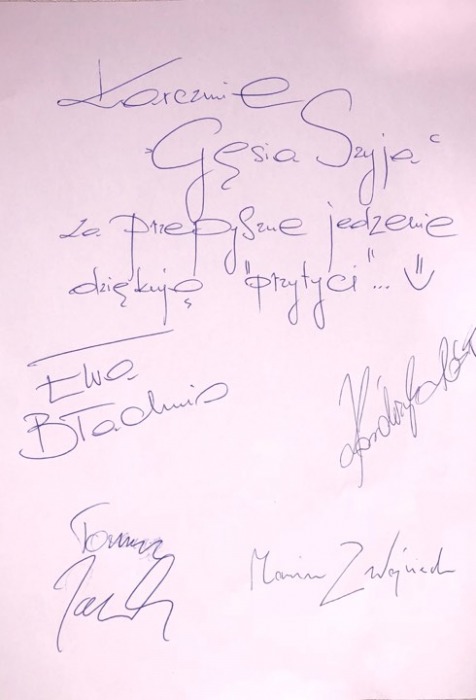 Karczmie
„Gęsia Szyja“
za przepyszne jedzenie
dziękują "przytyci"...
Ewa
Błachnio
Tomasz
Marian Zwójniach